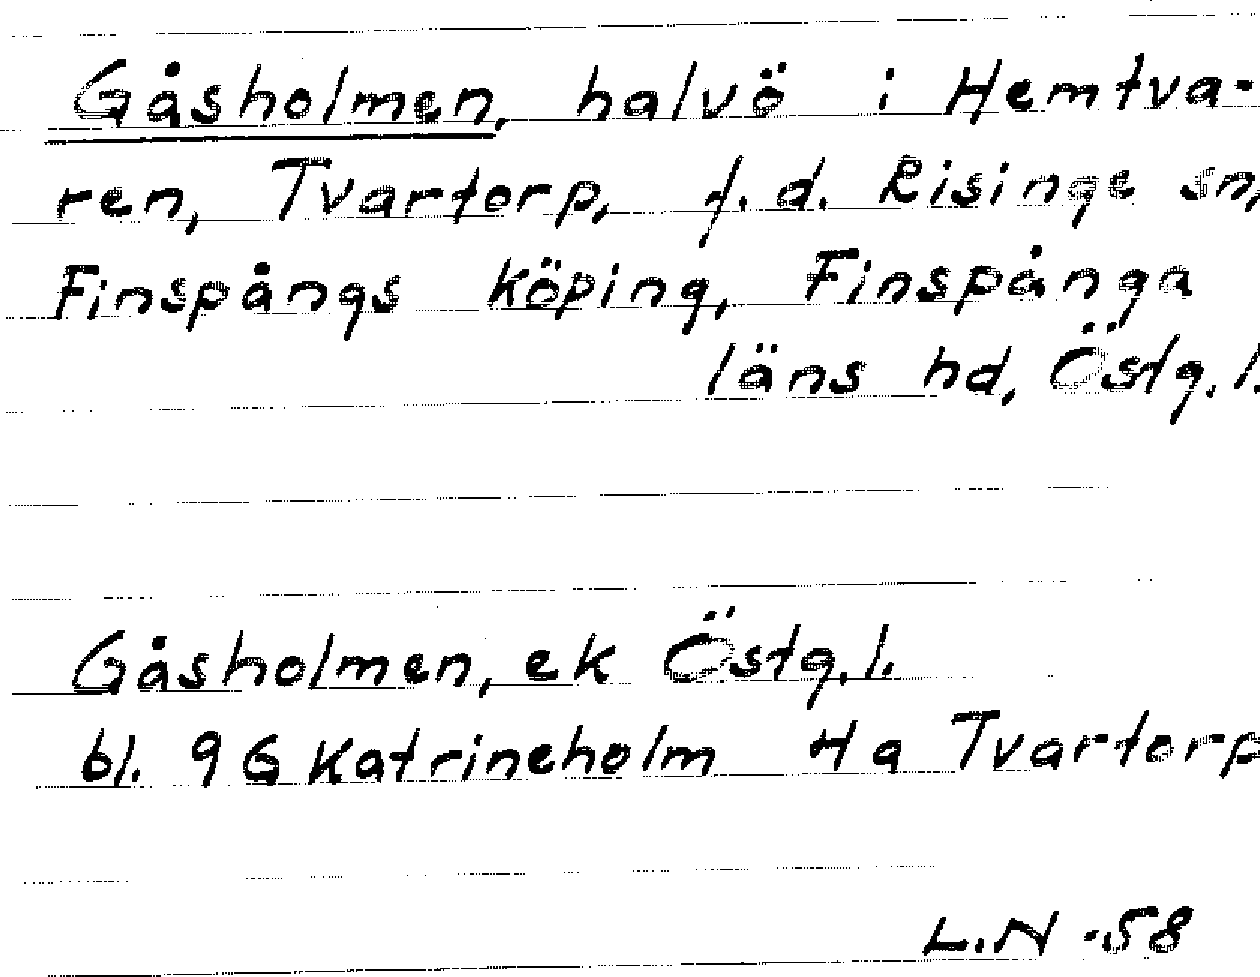 Gåsholmen, halvö i Hemtva-
ren, Tvartorp, f.d. Risinge sn,
Finspångs köping, Finspånga
läns hd, Östg. l.
Gåsholmen, ek Östg. l.
bl. 9G Katrineholm 4a Tvartorp
L.N -58